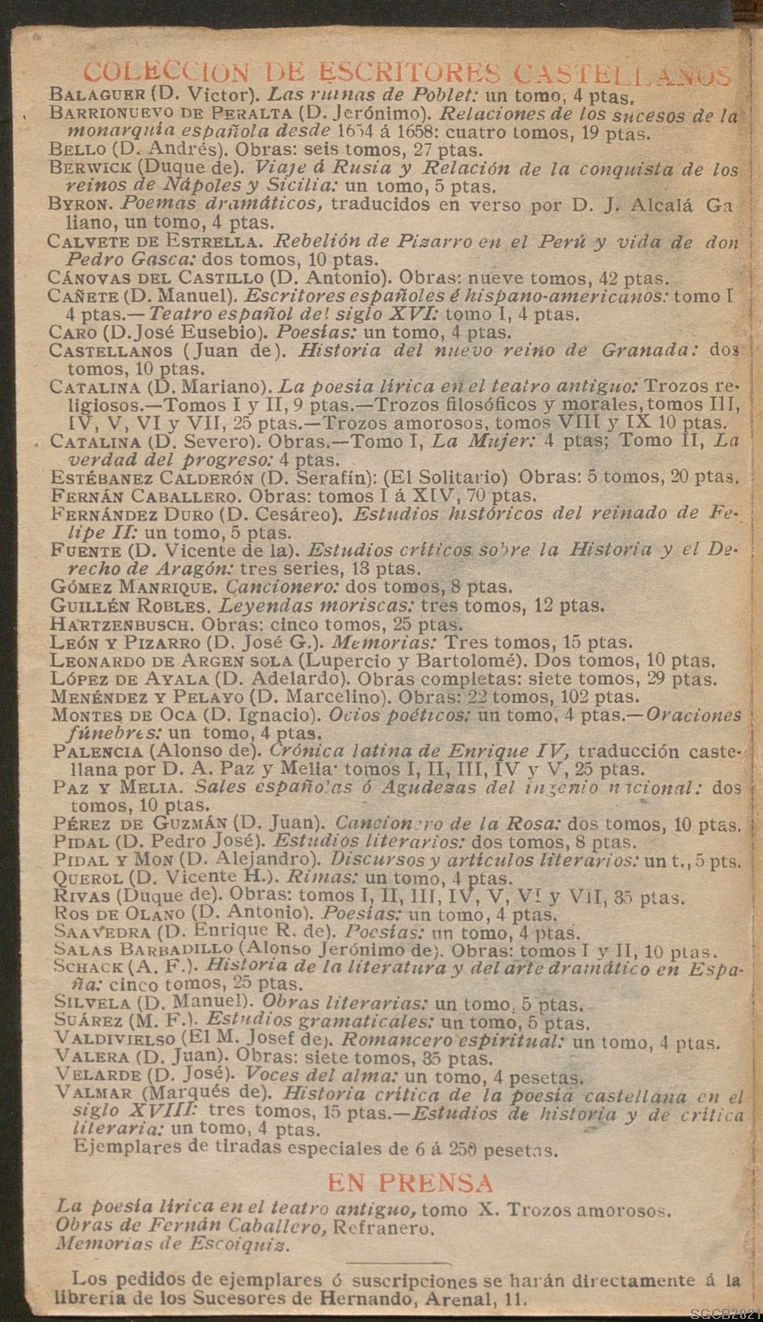 COLECCION DE ESCRITORES CASTELLANOS
BALAGUER (D. Victor). Las ruinas de Poblet: un tomo, 4 ptas.
BARRIONUEVO DE PERALTA (D. Jerónimo). Relaciones de los sucesos de la
monarquia española desde 1654 á 1658: cuatro tomos, 19 ptas.
BELLO (D. Andrés). Obras: seis tomos, 27 ptas.
BERWICK (Duque de). Viaje á Rusia y Relación de la conquista de los
reinos de Nápoles y Sicilia: un tomo, 5 ptas.
BYRON. Poemas dramáticos, traducidos en verso por D. J. Alcalá Ga
liano, un tomo, 4 ptas.
CALVETE DE ESTRELLA. Rebelión de Pizarro en el Perú y vida de don
Pedro Gasca: dos tomos, 10 ptas.
CÁNOVAS DEL CASTILLO (D. Antonio). Obras: nueve tomos, 42 ptas.
CAÑETE (D. Manuel). Escritores españoles é hispano-americanos: tomo I
4 ptas.—Teatro español del siglo XVI: tomo I, 4 ptas.
CARO (D. José Eusebio). Poesías: un tomo, 4 ptas.
CASTELLANOS (Juan de). Historia del nuevo reino de Granada: dos
tomos, 10 ptas.
CATALINA (D. Mariano). La poesia lírica en el teatro antiguo: Trozos re-
ligiosos.—Tomos I y II, 9 ptas.—Trozos filosóficos y morales, tomos III,
IV, V, VI y VII, 25 ptas.—Trozos amorosos, tomos VIII y IX 10 ptas.
CATALINA (D. Severo). Obras.—Tomo I, La Mujer: 4 ptas; Tomo II, La
verdad del progreso: 4 ptas.
ESTÉBANEZ CALDERÓN (D. Serafín): (El Solitario) Obras: 5 tomos, 20 ptas.
FERNÁN CABALLERO. Obras: tomos I á XIV, 70 ptas.
FERNÁNDEZ DURO (D. Cesáreo). Estudios históricos del reinado de Fe-
lipe II: un tomo, 5 ptas.
FUENTE (D. Vicente de la). Estudios críticos sobre la Historia y el De-
recho de Aragón: tres series, 13 ptas.
GÓMEZ MANRIQUE. Cancionero: dos tomos, 8 ptas.
GUILLÉN ROBLES. Leyendas moriscas: tres tomos, 12 ptas.
HARTZENBUSCH. Obras: cinco tomos, 25 ptas.
LEÓN Y PIZARRO (D. José G.). Memorias: Tres tomos, 15 ptas.
LEONARDO DE ARGEN SOLA (Lupercio y Bartolomé). Dos tomos, 10 ptas.
LÓPEZ DE AYALA (D. Adelardo). Obras completas: siete tomos, 29 ptas.
MENÉNDEZ Y PELAYO (D. Marcelino). Obras: 22 tomos, 102 ptas.
MONTES DE OCA (D. Ignacio). Ocios poéticos: un tomo, 4 ptas.—Oraciones
fúnebres: un tomo, 4 ptas.
PALENCIA (Alonso de). Crónica latina de Enrique IV, traducción caste-
llana por D. A. Paz y Melia· tomos I, II, III, IV y V, 25 ptas.
PAZ Y MELIA. Sales españolas ó Agudezas del ingenio nacional: dos
tomos, 10 ptas.
PÉREZ DE GUZMÁN (D. Juan). Cancionero de la Rosa: dos tomos, 10 ptas.
PIDAL (D. Pedro José). Estudios literarios: dos tomos, 8 ptas.
PIDAL Y MON (D. Alejandro). Discursos y artículos literarios: un t., 5 pts.
QUEROL (D. Vicente H.). Rimas: un tomo, 4 ptas.
RIVAS (Duque de). Obras: tomos I, II, III, IV, V, VI y VII, 35 ptas.
ROS DE OLANO (D. Antonio). Poesías: un tomo, 4 ptas.
SAAVEDRA (D. Enrique R. de). Poesías: un tomo, 4 ptas.
SALAS BARBADILLO (Alonso Jerónimo de). Obras: tomos I y II, 10 ptas.
SCHACK (A. F.). Historia de la literatura y del arte dramático en Espa-
ña: cinco tomos, 25 ptas.
SILVELA (D. Manuel). Obras literarias: un tomo, 5 ptas.
SUÁREZ (M. F.). Estudios gramaticales: un tomo, 5 ptas.
VALDIVIELSO (El M. Josef de). Romancero espiritual: un tomo, 4 ptas.
VALERA (D. Juan). Obras: siete tomos, 35 ptas.
VELARDE (D. José). Voces del alma: un tomo, 4 pesetas.
VALMAR (Marqués de). Historia crítica de la poesía castellana en el
siglo XVIII: tres tomos, 15 ptas.—Estudios de historia y de crítica
literaria: un tomo, 4 ptas.
Ejemplares de tiradas especiales de 6 á 250 pesetas.
EN PRENSA
La poesía lírica en el teatro antiguo, tomo X. Trozos amorosos.
Obras de Fernán Caballero, Refranero.
Memorias de Escoiquiz.
Los pedidos de ejemplares ó suscripciones se harán directamente á la
librería de los Sucesores de Hernando, Arenal, 11.
SGCB2021